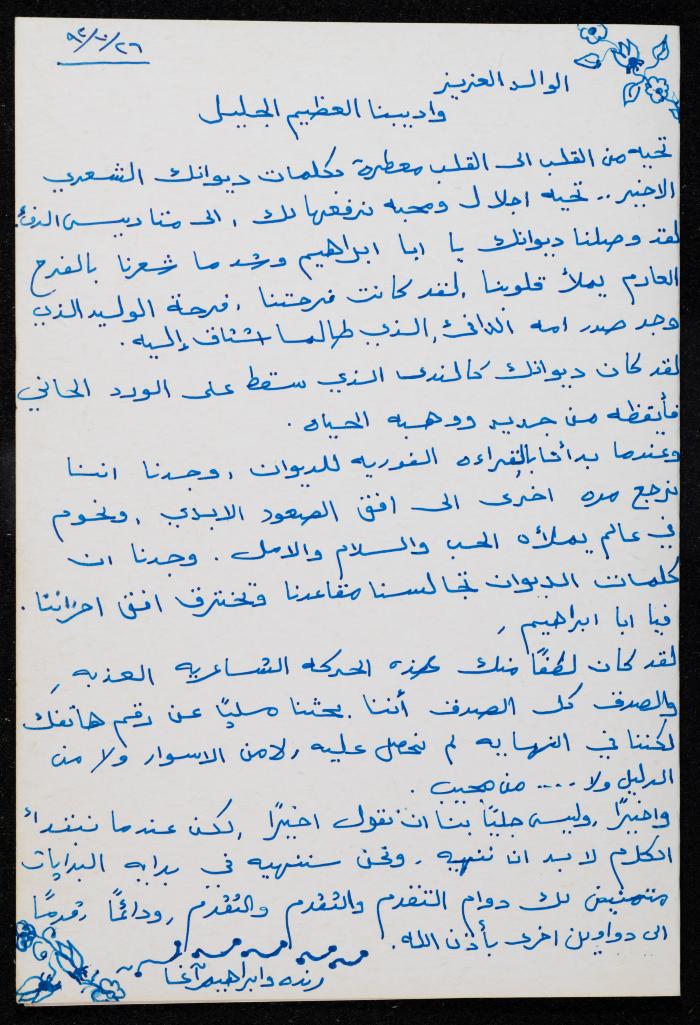 ٩٢/١٠/٢٦
الوالد العزيز
واديبنا العظيم الجليل
تحيه من القلب الى القلب معطرة بكلمات ديوانك الشعري
الاخير .. تحيه اجلال ومحبه نرفعها لك ، الى متاديس الدفئ.
لقد وصلنا ديوانك يا ابا ابراهيم وشد ما شعرنا بالفرح
العارم يملأ قلوبنا ، لقد كانت فرحتنا ، فرحة الوليد الذي
وجد صدر امه الدافئ ، الذي طالما اشتاق إليه .
لقد كان ديوانك كالندى الذي سقط على الورد الحاني
فأيقظه من جديد ووهبه الحياه .
وعندما بدأنا بالقراءه الفوريه للديوان ، وجدنا اننا
نرجع مره اخرى الى افق الصعود الابدي ، ونحوم
في عالم يملأه الحب والسلام والامل . وجدنا ان
كلمات الديوان تجالسنا مقاعدنا وتخترق افق احزاننا .
فيا ابا ابراهيم ،
لقد كان لطفًا منك هذه الحركه الشاعريه العذبه ،
والصدف كل الصدف أننا بحثنا مليًا عن رقم هاتفك
لكننا في النهايه لم نحصل عليه ، لا من الاسوار ولا من
الدليل ولا .... من مجيب .
واخيرًا ، وليس جليًا بنا ان نقول اخيرًا ، لكن عندما نبتدأ
الكلام لا بد ان ننهيه ، ونحن سننهيه في بدايه البدايات
متمنين لك دوام التقدم والتقدم والتقدم ، ودائمًا قدمًا
الى دواوين اخرى بأذن الله .
رنده وابراهيم آغا